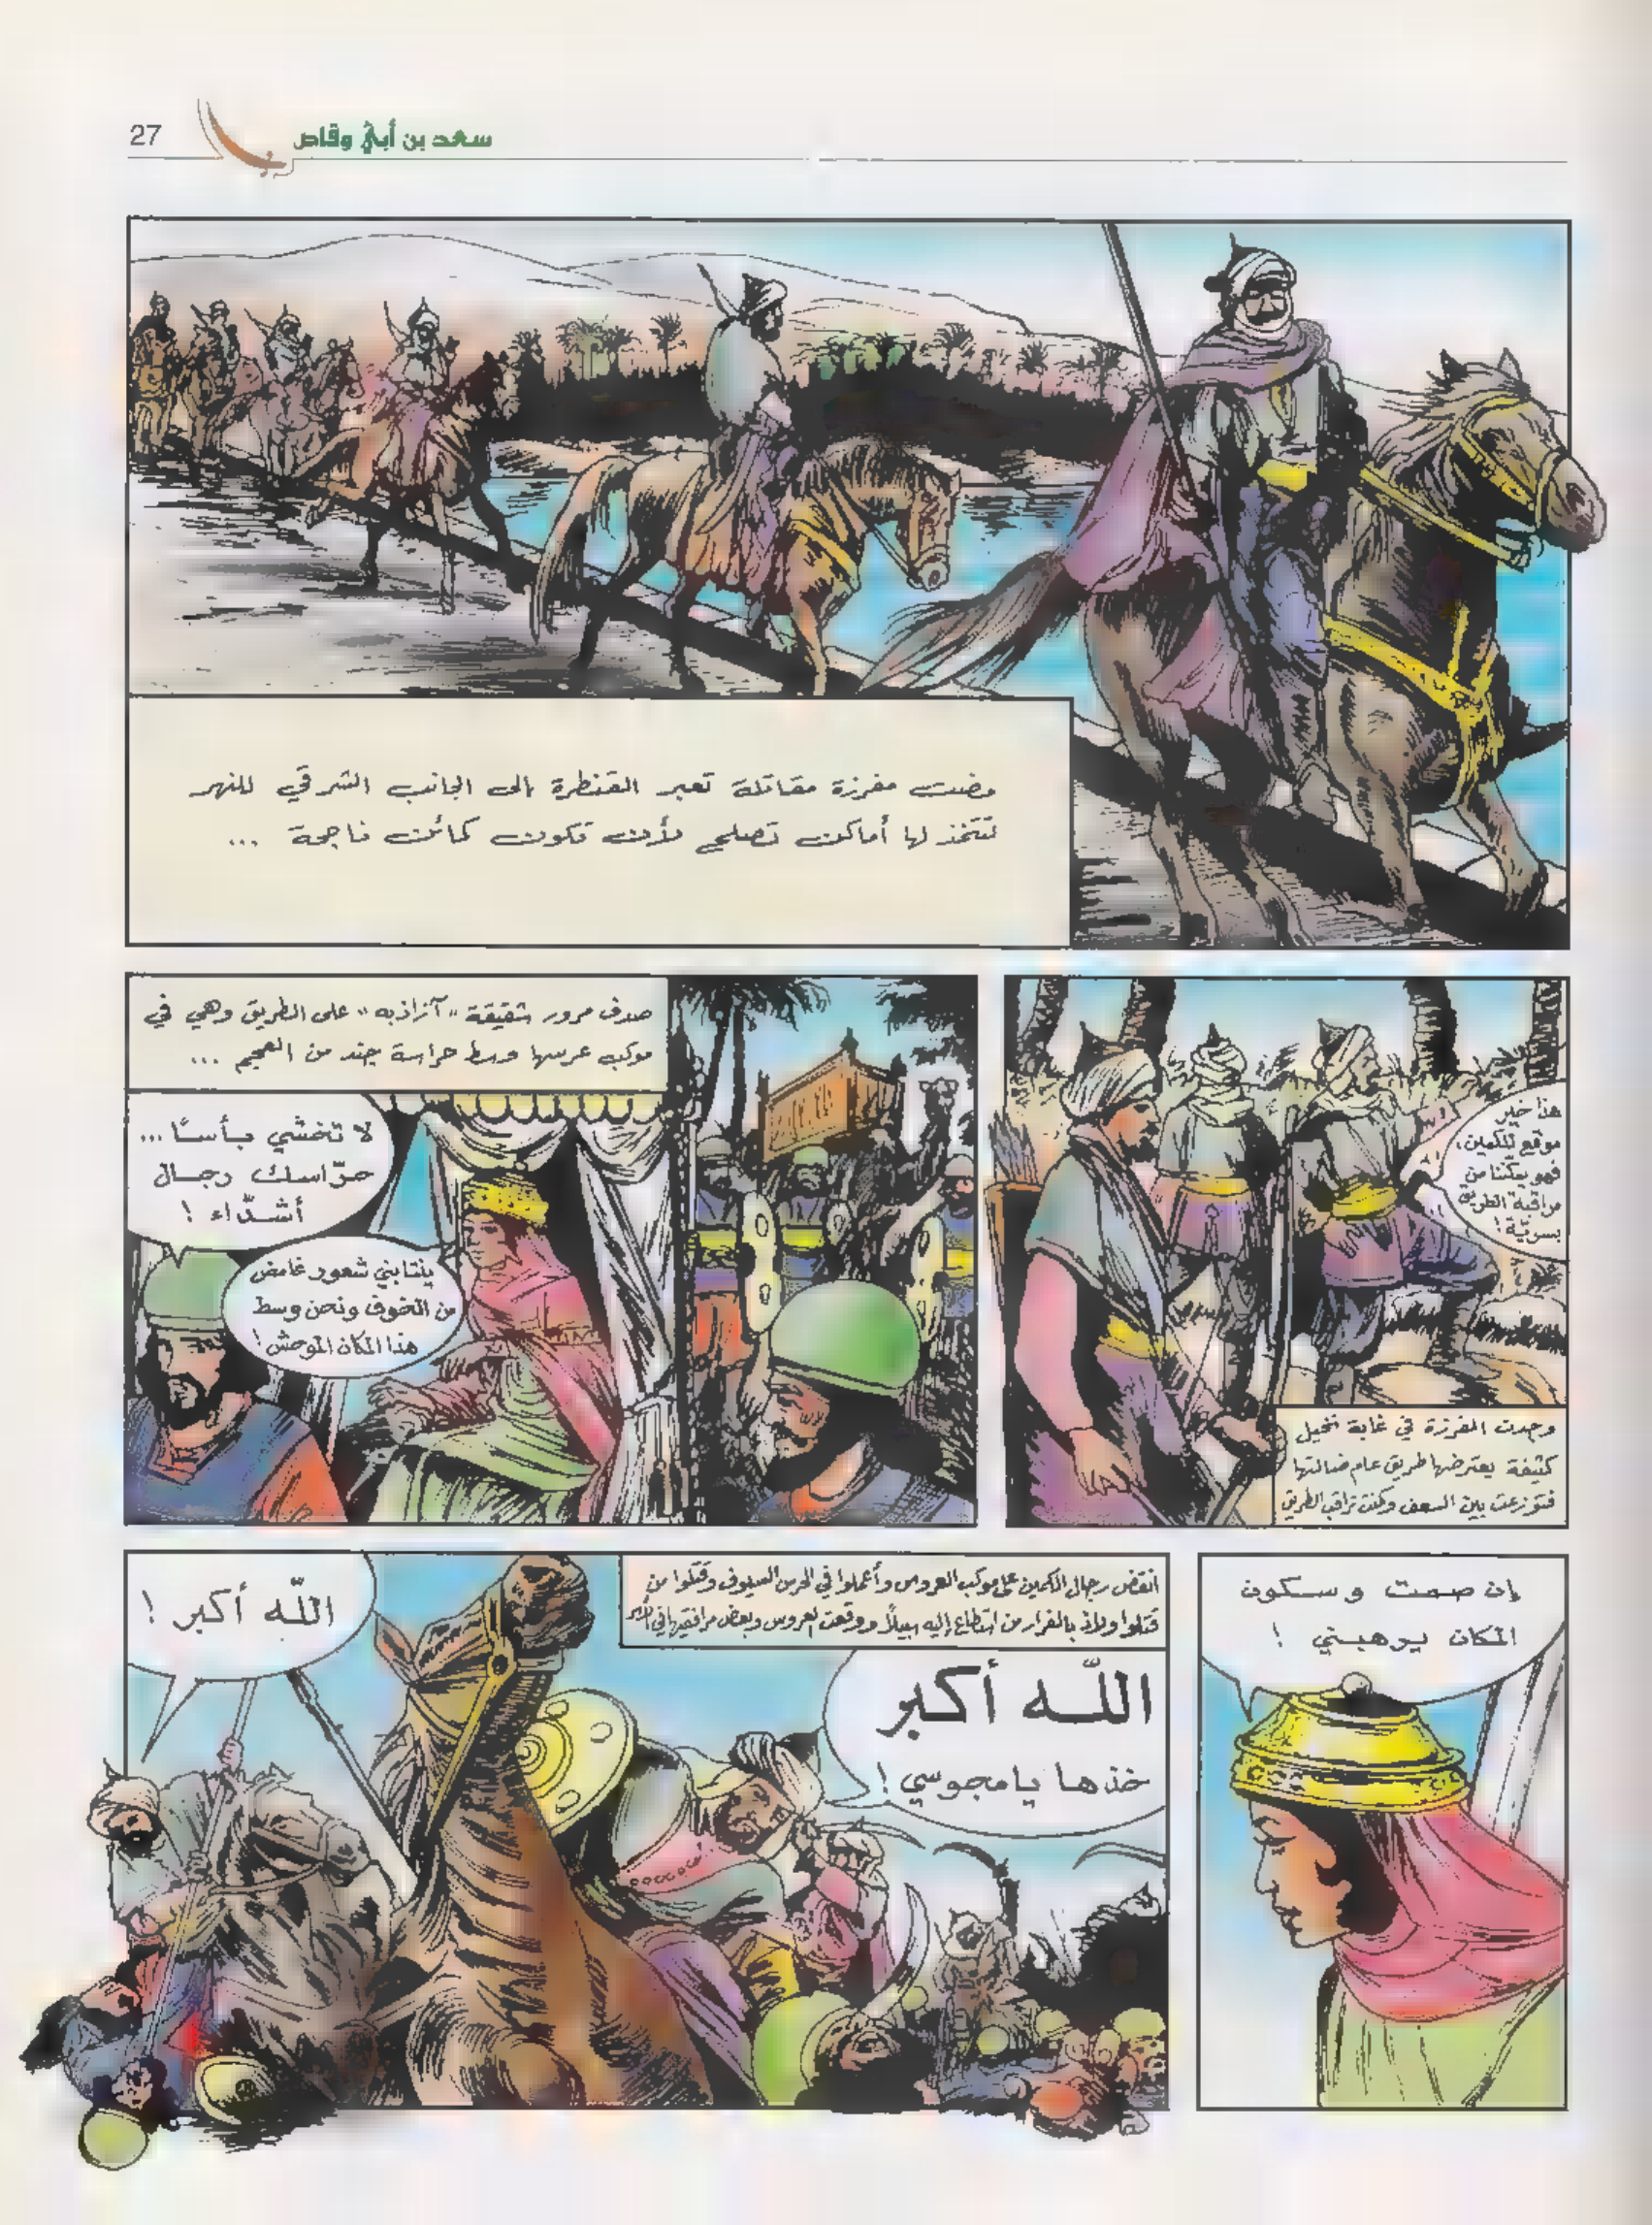 27
سعد بن أبي وقاص
مضت مفرزة مقاتلة تعبر القنطرة إلى الجانب الشرقي للنهر
لتتخذ لها أماكن تصلح لأن تكون كمائن ناجحة ...
هذا خير
موقع للكمين،
فهو يمكّننا من
مراقبة الطريق
بسريّة!
وجدت المفرزة في غابة نخيل
كثيفة يعترضها طريق عام ضالتها
فتوزعت بين السعف وكمنت تراقب الطريق
صدف مرور شقيقة "آزاذبه" على الطريق وهي في
موكب عرسها وسط حراسة جند من العجم ...
ينتابني شعور غامض
من الخوف ونحن وسط
هذا المكان الموحش!
لا تخشي بأسًا ...
حرّاسك رجال
أشدّاء !
إن صمت وسكون
المكان يرهبني !
انقض رجال الكمين على موكب العروس وأعملوا في الحرس السيوف وقتلوا من
قتلوا ولاذ بالفرار من استطاع إليه سبيلاً ووقعت العروس وبعض مرافقيها في الأسر
الله أكبر
خذها يا مجوسي !
الله أكبر !